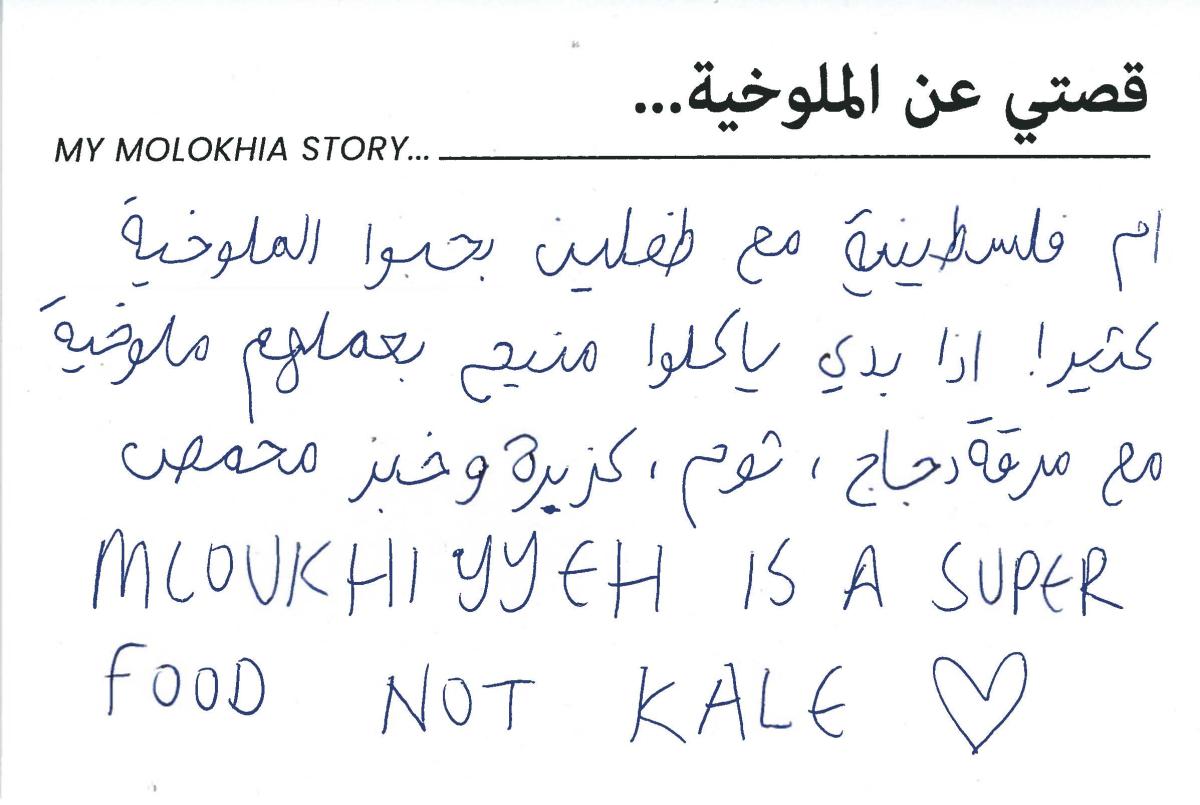 قصتي عن الملوخية...
MY MOLOKHIA STORY...
ام فلسطينية مع طفلين بحبوا الملوخية
كتير! اذا بدي ياكلوا منيح بعملهم ملوخية
مع مرقة دجاج، ثوم، كزبرة وخبز محمص
MLOUKHIYYEH IS A SUPER
FOOD NOT KALE ♡